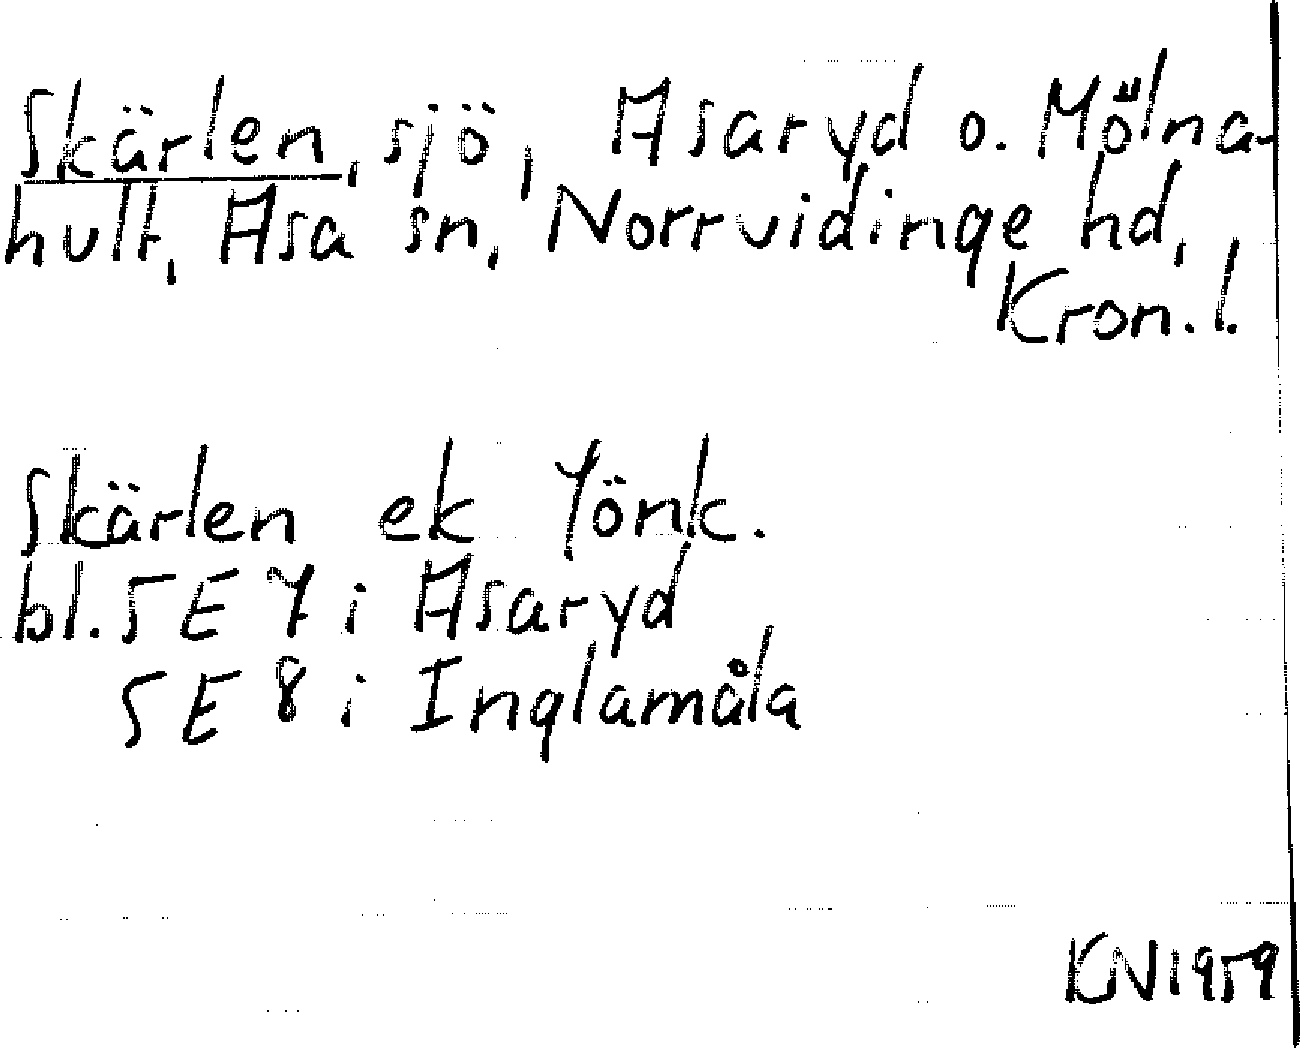 Skärlen, sjö, Asaryd o. Mölna-
hult, Asa sn, Norrvidinge hd,
Kron. l.
Skärlen ek Jönk.
bl. 5E7 i Asaryd
5E8 i Inglamåla
KN 1959